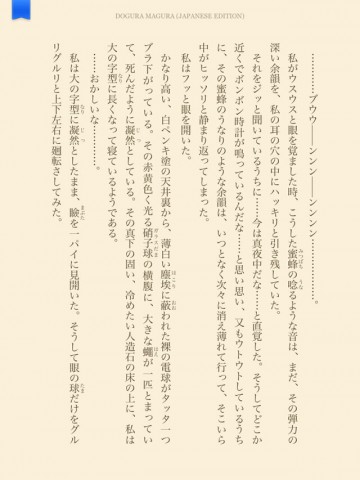 DOGURA MAGURA (JAPANESE EDITION)
…………ブウウ――――ンンン――――ンンンン………………。
私がウスウスと眼を覚ました時、こうした蜜蜂の唸るような音は、まだ、その弾力の
深い余韻を、私の耳の穴の中にハッキリと引き残していた。
それをジッと聞いているうちに……今は真夜中だな……と直覚した。そうしてどこか
近くでボンボン時計が鳴っているんだな……と思い思い、又もウトウトしているうち
に、その蜜蜂のうなりのような余韻は、いつとなく次々に消え薄れて行って、そこいら
中がヒッソリと静まり返ってしまった。
私はフッと眼を開いた。
かなり高い、白ペンキ塗の天井裏から、薄白い塵埃に蔽われた裸の電球がタッタ一つ
ブラ下がっている。その赤黄色く光る硝子球の横腹に、大きな蠅が一匹とまってい
て、死んだように凝然としている。その真下の固い、冷めたい人造石の床の上に、私は
大の字型に長くなって寝ているようである。
……おかしいな…………。
私は大の字型に凝然としたまま、瞼を一パイに見開いた。そうして眼の球だけをグル
リグルリと上下左右に廻転さしてみた。